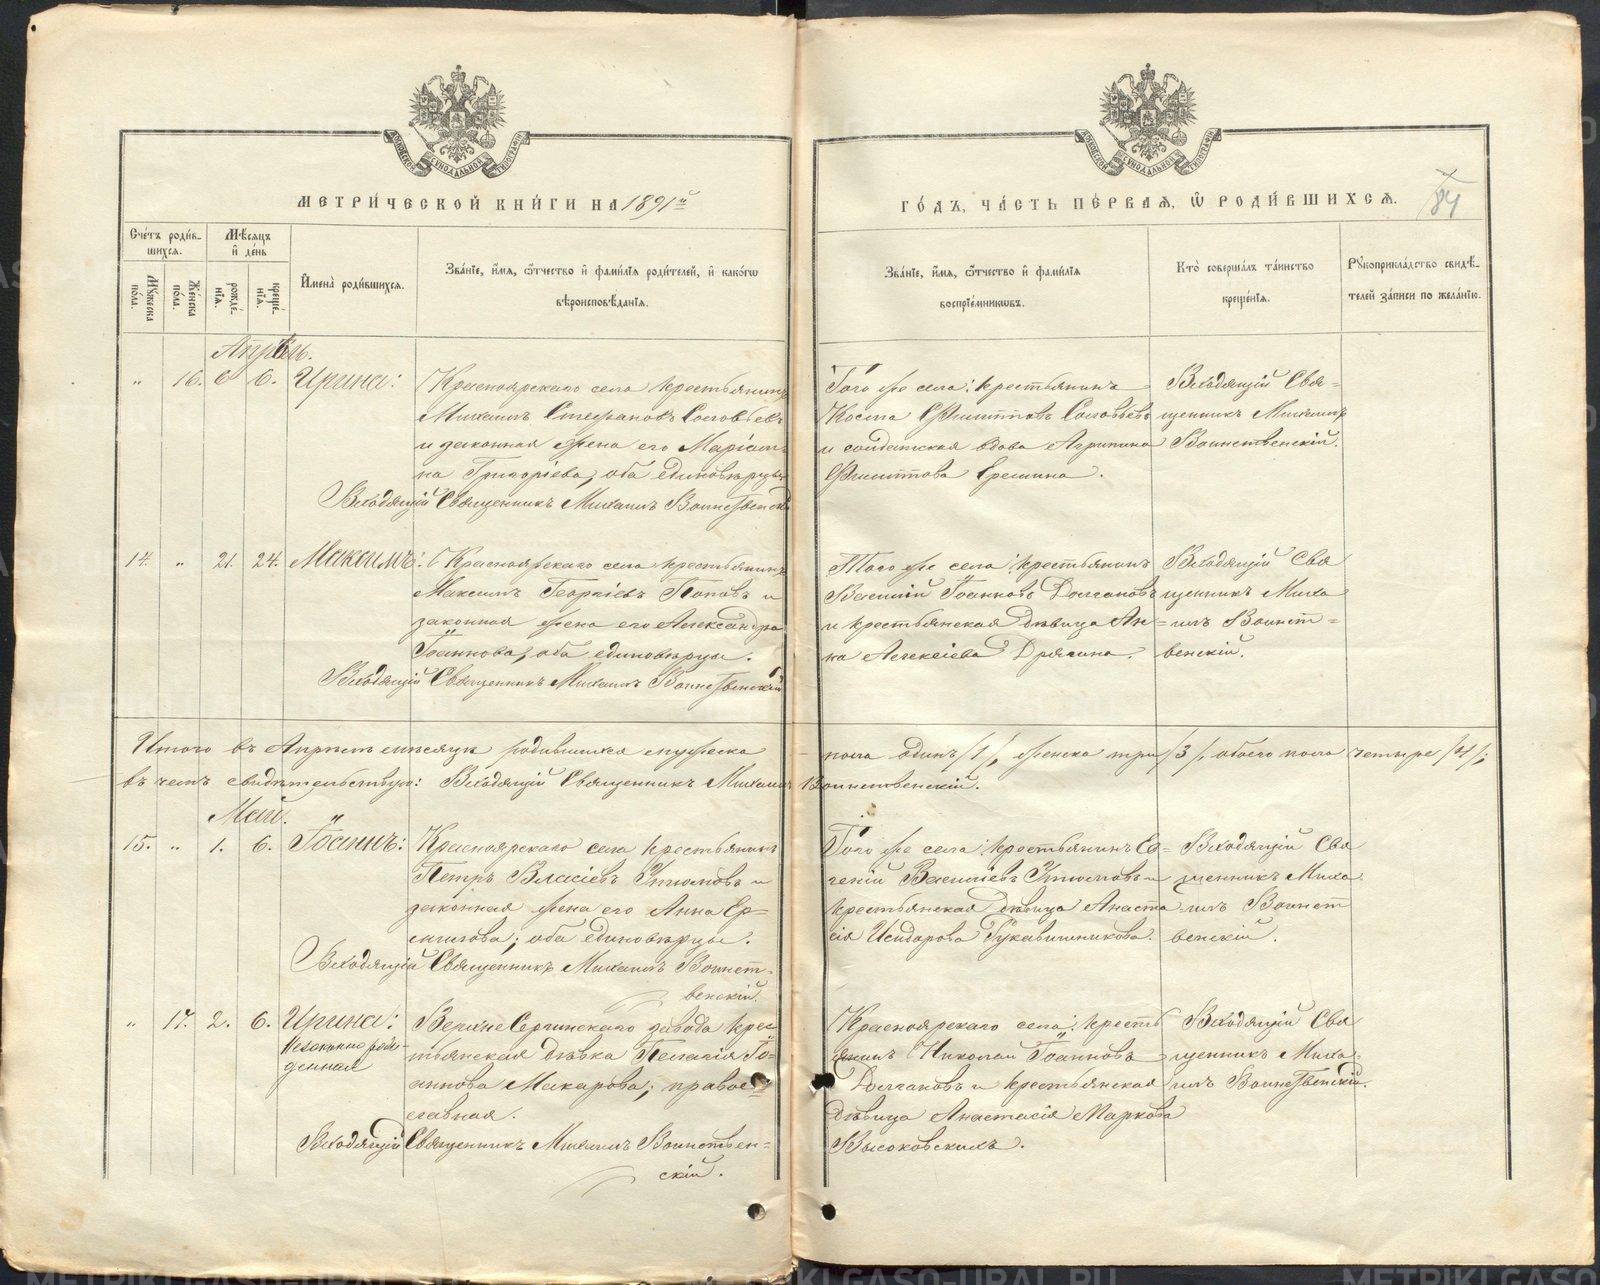 МЕТРИ́ЧЕСКОЙ КНИ́ГИ НА 1891й
ГО́ДЪ, ЧА́СТЬ ПЕ́РВАЯ, Ѽ РОДИ́ВШИХСЯ.
84
Сче́тъ роди́в-
шихся.
Мѣ́сяцъ
и҆ де́нь
Мꙋ́жеска
по́ла.
Же́нска
по́ла.
рожде́-
нїѧ.
креще́-
нїѧ.
И҆мена̀ роди́вшихся.
Зва́нїе, и҆́мя, ѻ҆́тчество и҆ фами́лїя роди́телей, и҆ како́гѡ
вѣроисповѣ́данїѧ.
Зва́нїе, и҆́мя, ѻ҆́тчество и҆ фами́лїя
воспрїе́мникѡвъ.
Кто̀ соверша́лъ та́инство
креще́нїѧ.
Рꙋкоприкла́дство свидѣ́-
телей за́писи по жела́нїю.
Апрѣль.
" 16. 6 6. Ирина:
Красноярскаго села крестьянинъ
Михаилъ Стефановъ Соловьевъ
и законная жена его Маріам-
на Григоріева, оба единовѣрцы.
Входящій Священникъ Михаилъ Воинственскій
Того же села: крестьянинъ
Косма Филипповъ Соловьевъ
и солдатская вдова Агрипина
Филиппова Еремина.
Входящій Свя-
щенникъ Михаилъ
Воинственскій.
14. " 21. 24. Максимъ:
Красноярскаго села крестьянинъ
Максимъ Георгіевъ Поповъ и
законная жена его Александра
Іоаннова, оба единовѣрцы.
Входящій Священникъ Михаилъ Воинственскій
Того же села: крестьянинъ
Василій Іоанновъ Долгановъ
и крестьянская дѣвица Ан-
на Алексіева Дрягина.
Входящій Свя
щенникъ Миха
илъ Воинст-
венскій.
Итого въ Апрѣлѣ мѣсяцѣ родившихся мужеска пола одинъ /1/, женска три /3/, обоего пола четыре /4/;
въ чемъ свидѣтельствую: Входящій Священникъ Михаилъ Воинственскій.
Май.
15. " 1. 6. Іоаннъ:
Красноярскаго села крестьянинъ
Петръ Власіевъ Утюмовъ и
законная жена его Анна Ер-
милова; оба единовѣрцы.
Входящій Священникъ Михаилъ Воинст-
венскій.
Того же села: крестьянинъ Ев-
геній Васильевъ Утюмовъ и
крестьянская дѣвица Анаста
сія Исидорова Рукавишникова.
Входящій Свя
щенникъ Миха
илъ Воинст
венскій.
" 17. 2. 6. Ирина:
Незаконно рож-
денная
Верхне Сергинскаго завода крес-
тьянская дѣвка Пелагія Іо-
аннова Макарова; правос-
славная.
Входящій Священникъ Михаилъ Воинствен-
скій.
Красноярскаго села: кресть
янинъ Николай Іоанновъ
Долгановъ и крестьянская
дѣвица Анастасія Маркова
Высоковскихъ.
Входящій Свя
щенникъ Миха-
илъ Воинственскій.